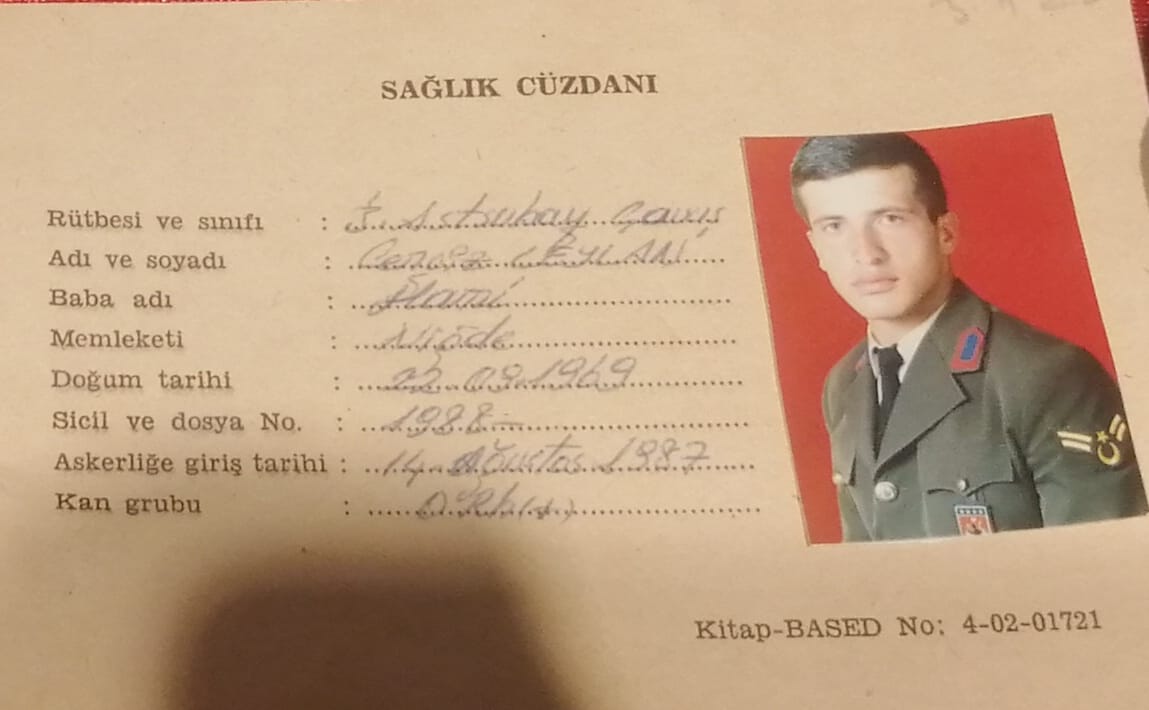 SAĞLIK CÜZDANI
Rütbesi ve sınıfı : J. Astsubay Çavuş
Adı ve soyadı :
Baba adı :
Memleketi : Niğde
Doğum tarihi : 09.1969
Sicil ve dosya No. : 1988-
Askerliğe giriş tarihi : 14 Ağustos 1987
Kan grubu : 0 Rh(+)
Kitap-BASED No: 4-02-01721